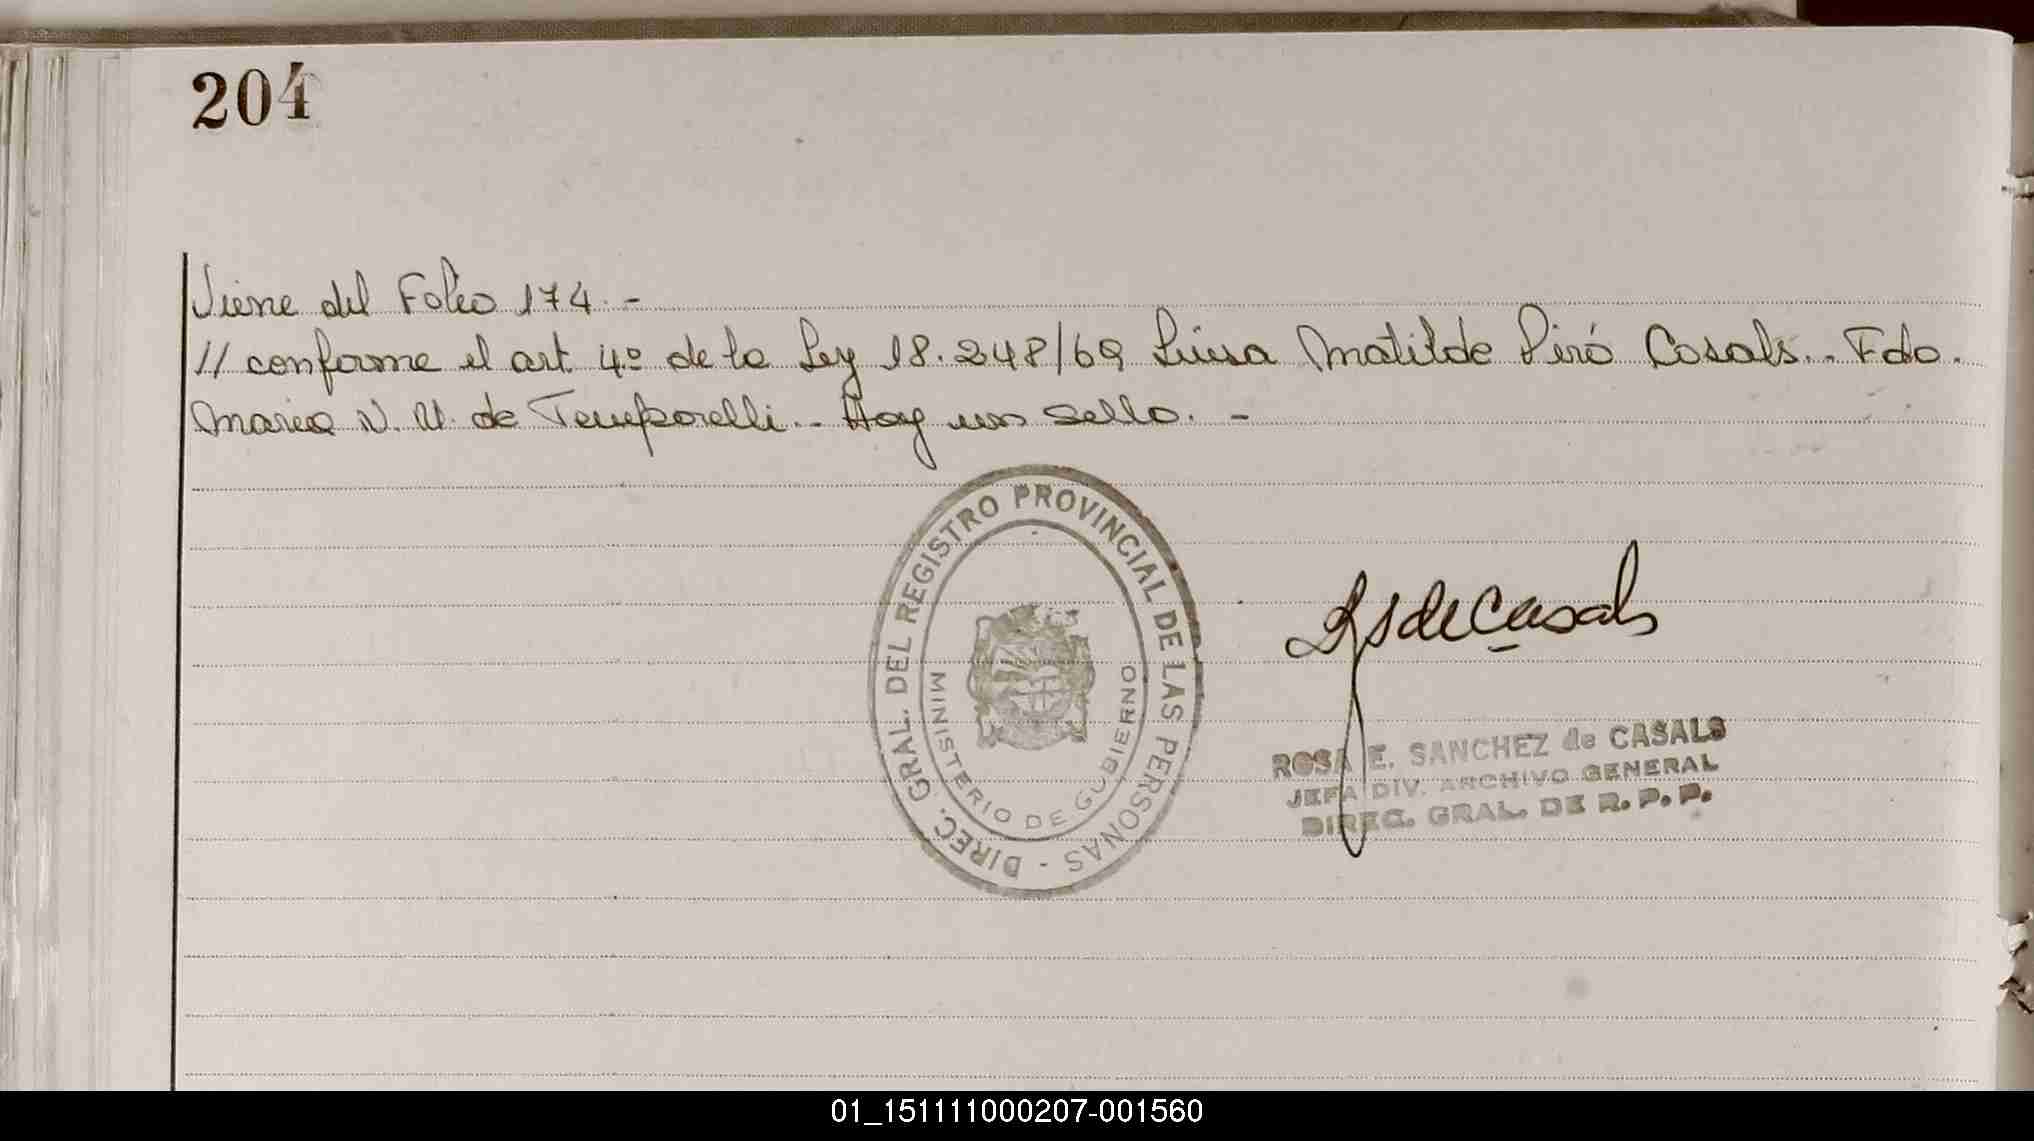 204
Viene del Folio 174.-
// conforme el art 4º de la Ley 18.248/69 Luisa Matilde Piró Casals.- Fdo.
Maria N. U. de Temporelli.- Hay un sello.-
DIREC. GRAL. DEL REGISTRO PROVINCIAL DE LAS PERSONAS -
MINISTERIO DE GOBIERNO
RSdeCasals
ROSA E. SANCHEZ de CASALS
JEFA DIV. ARCHIVO GENERAL
DIREC. GRAL. DE R. P. P.
01_151111000207-001560